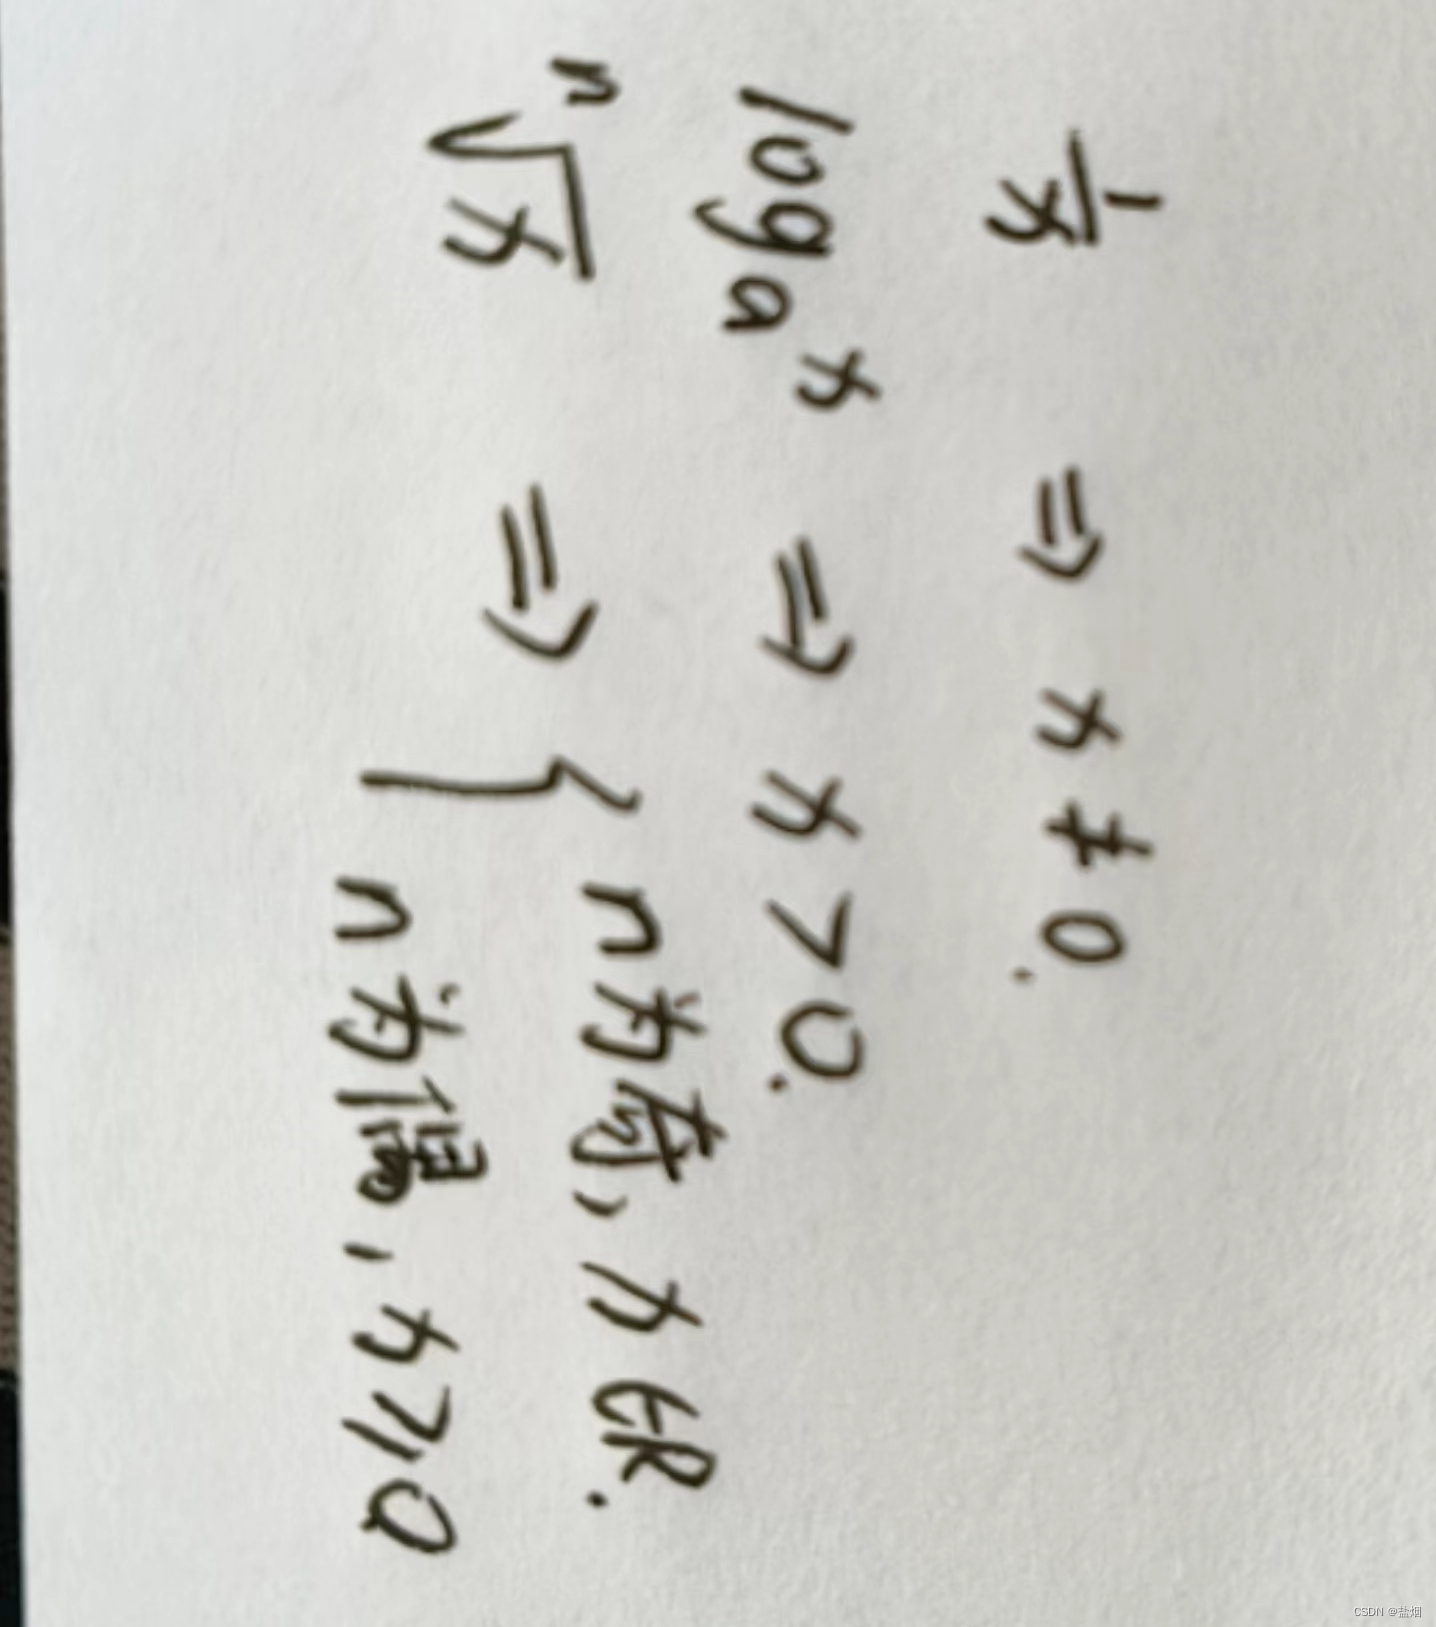 1/x ⇒ x ≠ 0.
log a x ⇒ x > 0.
n√x ⇒ { n为奇, x ∈ R.
n为偶, x ⩾ 0
CSDN @盐烟